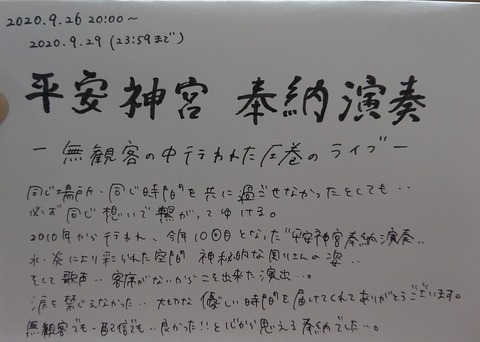 2020.9.26 20:00〜
2020.9.29 (23:59まで)
平安神宮 奉納演奏
ー無観客の中行われた圧巻のライブー
同じ場所・同じ時間を共に過ごせなかったとしても‥
必ず同じ想いで繋がってゆける。
2010年から行われ、今年10回目となった"平安神宮奉納演奏‥
水・炎により彩られた空間 神秘的な周りさんの姿‥
そして歌声‥ 客席がないからこそ出来た演出‥。
涙を禁じえなかった‥ 大切な 優しい時間を届けてくれてありがとうございます。
無観客でも・配信でも‥良かった!!と心から思える奉納でした‥。